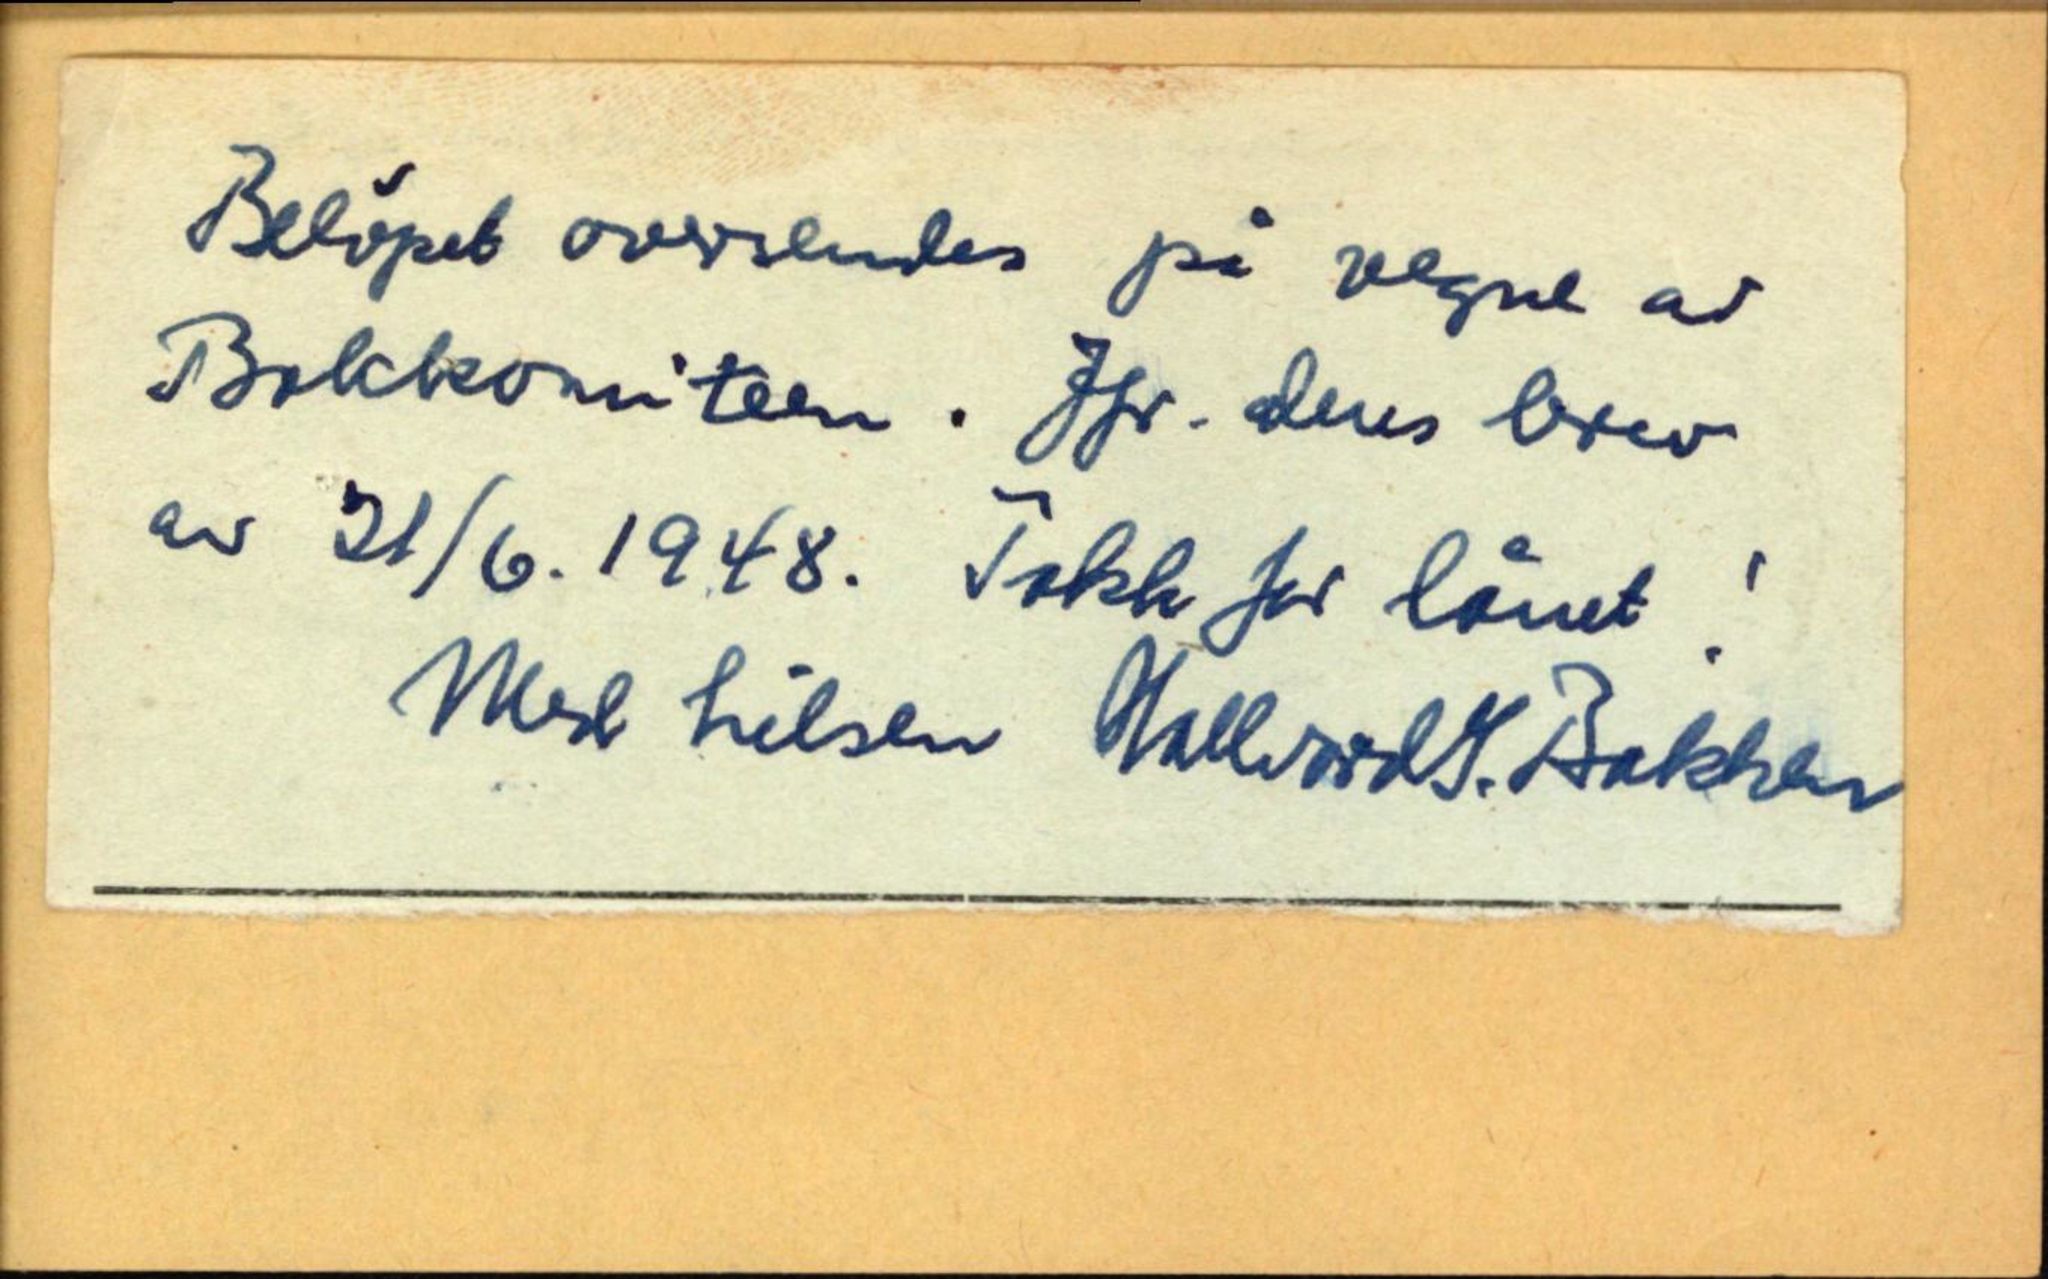 Beløpet oversendes på vegne av
Bokkomiteen. Jfr. deres brev
av 21/6. 1948. Takk for lånet!
Med hilsen Hallvard S. Bakken